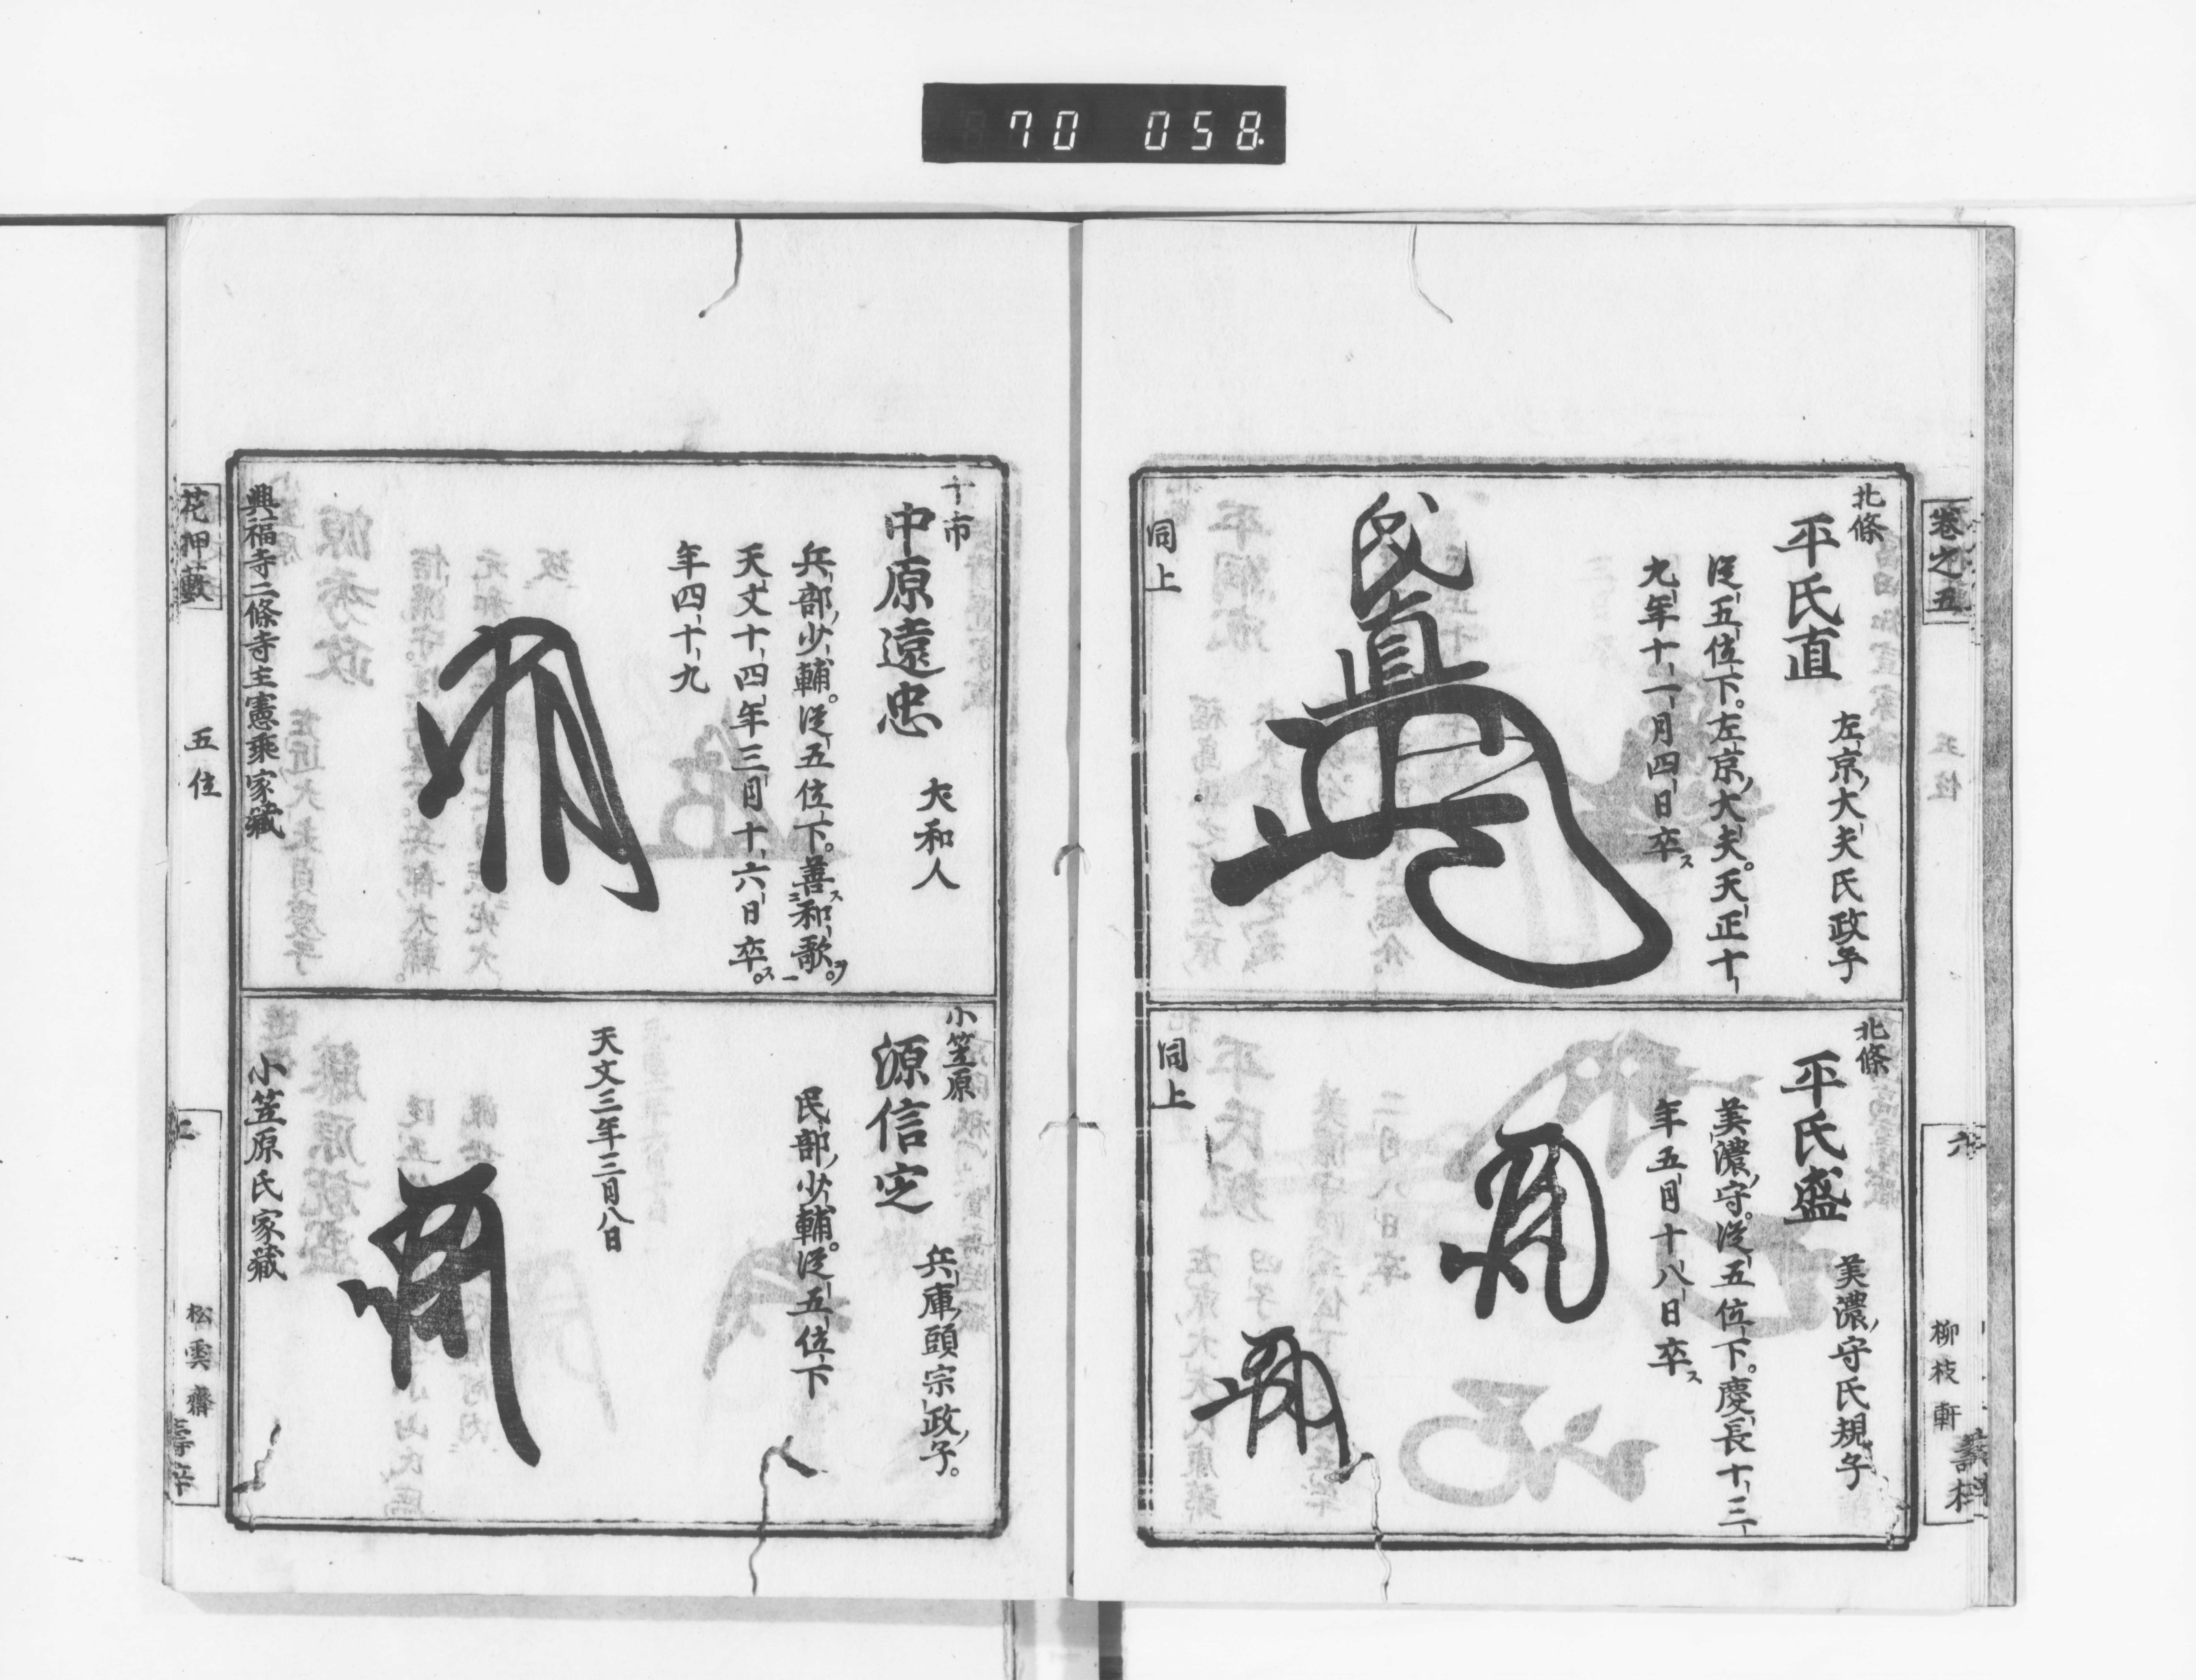 70 058
巻之五
五位
六
柳枝軒
北條
平氏直
左京大夫氏政子
従五位下。左京大夫。天正十
九年十一月四日卒ス
氏直
同上
北條
平氏盛
美濃守氏規子
美濃守。従五位下。慶長十三
年五月十八日卒ス
同上
十市
中原遠忠
大和人
兵部少輔。従五位下。善ス二和歌ヲ一。
天文十四年三月十六日卒ス。
年四十九
興福寺二條寺主憲乘家藏
小笠原
源信定
兵庫頭宗政子。
民部少輔。従五位下
天文三年三月八日
小笠原氏家藏
花押藪
五位
松雲齋